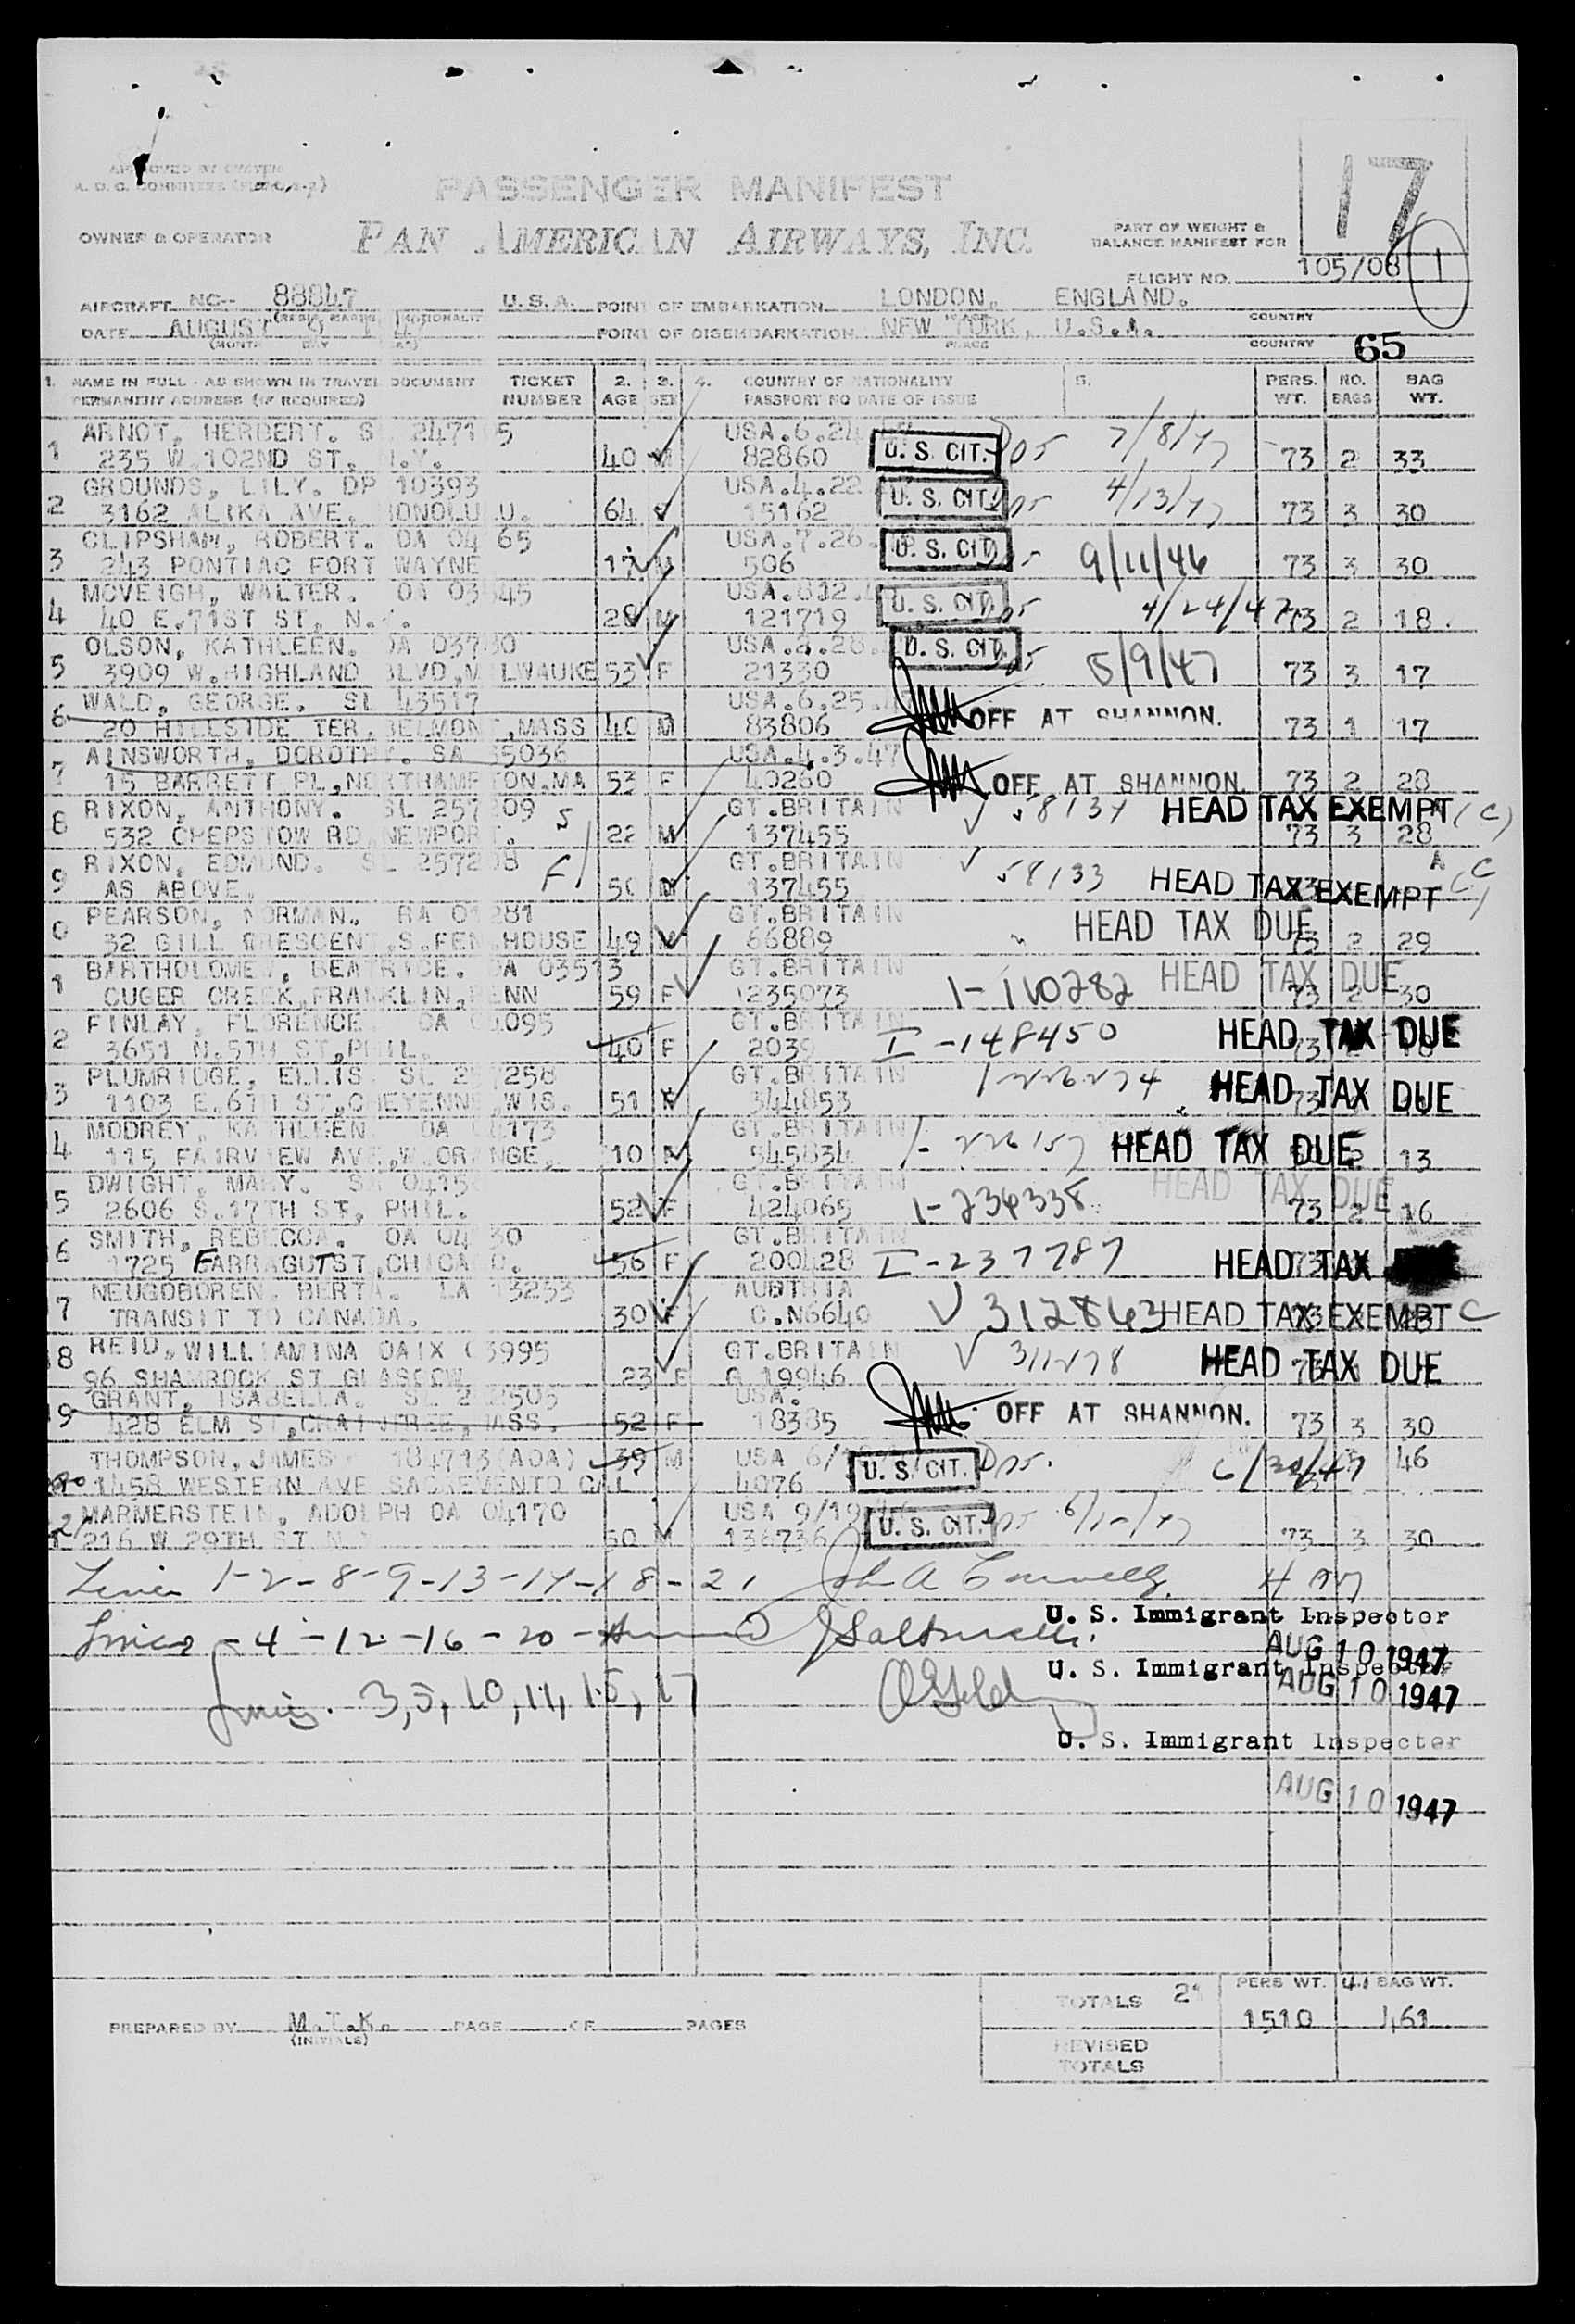 PASSENGER MANIFEST
17
OWNER & OPERATOR PAN AMERICAN AIRWAYS, INC. PART OF WEIGHT & BALANCE MANIFEST FOR
FLIGHT NO. 105/08 1
AIRCRAFT NC-- 88847 U.S.A. POINT OF EMBARKATION LONDON, ENGLAND.
DATE AUGUST 9 POINT OF DISEMBARKATION NEW YORK, U.S.A. COUNTRY
65
1. NAME IN FULL - AS SHOWN IN TRAVEL DOCUMENT TICKET 2. 3. 4. COUNTRY OF NATIONALITY 5. PERS. NO. BAG
PERMANENT ADDRESS (IF REQUIRED) NUMBER AGE SEX PASSPORT NO DATE OF ISSUE WT. BAGS WT.
ARNOT, HERBERT. S 2471 5 USA.6.24 7/8/47
1 235 W.102ND ST. N.Y. 40 M 82860 U. S. CIT. 73 2 33
GROUNDS, LILY. DP 10393 USA.4.22 4/13/47
2 3162 ALIKA AVE. HONOLU U. 64 15162 U. S. CIT. 73 3 30
CLIPSHAM, ROBERT. OA 04 65 USA.7.26.
3 243 PONTIAC FORT WAYNE 17 506 U. S. CIT. 9/11/46 73 3 30
MCVEIGH, WALTER. OA 03 45
4 40 E.71ST ST. N. . 28 M 121719 U. S. CIT. 4/24/47 73 2 18
OLSON, KATHLEEN. OA 037 0
5 3909 W.HIGHLAND BLVD.M LWAUKE 53 F 21330 U. S. CIT. 5/9/47 73 3 17
WALD, GEORGE. SL 43517 USA.6.25.
6 20 HILLSIDE TER. BELMONT,MASS 40 M 83806 OFF AT SHANNON. 73 1 17
AINSWORTH, DOROTHY. SA 5036 USA.4.3.47
7 15 BARRETT PL,NORTHAMPTON.MA 53 F 40260 OFF AT SHANNON. 73 2 28
RIXON, ANTHONY. SL 257 09 S GT.BRITAIN 58134 HEAD TAX EXEMPT (C)
8 532 CHEPSTOW RD NEWPORT. 22 M 137455 73 3 28
RIXON, EDMUND. SL 2572 8 F GT.BRITAIN 58133 HEAD TAX EXEMPT
9 AS ABOVE. 50 M 137455
PEARSON, NORMAN. 281 GT.BRITAIN HEAD TAX DUE
0 32 GILL CRESCENT.S.FEN HOUSE 49 66889 73 2 29
BARTHOLOMEW, BEATRYCE. OA 03513 GT.BRITAIN HEAD TAX DUE
1 CUGER CREEK,FRANKLIN,PENN 59 F 1235073 1-110282 73 2 30
FINLAY, FLORENCE OA 4095 GT.BRITAIN HEAD TAX DUE
2 3651 N.5TH ST,PHIL. 40 F 2039 I-148450
PLUMRIDGE, ELLIS. SL 25 258 GT.BRITAIN HEAD TAX DUE
3 1103 E.6T ST,CHEYENNE WIS. 51 344853
MODREY, KATHLEEN OA 4173 GT.BRITAIN 1-226157 HEAD TAX DUE
4 115 FAIRVIEW AVE,W.ORANGE, 10 545834 13
DWIGHT, MARY. S 0415 GT.BRITAIN HEAD TAX DUE
5 2606 S.17TH ST, PHIL. 52 F 424065 1-234338 73 2 16
SMITH, REBECCA. OA 04 30 GT.BRITAIN
6 1725 FARRAGUTST,CHICA O. 56 F 200428 I-237787 HEAD TAX
NEUGOBOREN, BERTA. LA 13253 AUSTRIA
7 TRANSIT TO CANADA. 30 F C.N6640 312863 HEAD TAX EXEMPT C
REID, WILLIAMINA OAIX 3995 GT.BRITAIN 311278 HEAD TAX DUE
18 96 SHAMROCK ST GLASGOW 23 F 19946
GRANT, ISABELLA. SL 2 2503 USA.
9 428 ELM ST, MASS. 52 F 18385 OFF AT SHANNON. 73 3 30
THOMPSON, JAMES 184713(AOA) 39 M USA 6/ U. S. CIT. 6/30/47 46
20 1458 WESTERN AVE SACREVENTO CAL 4076
MARMERSTEIN, ADOLPH OA 04170 USA 9/19/46 U. S. CIT.
21 216 W 29TH ST N.Y 50 M 136736 73 3 30
Lines 1-2-8-9-13-14-18-21 John A
U. S. Immigrant Inspector
Lines -4-12-16-20- AUG 10 1947
U. S. Immigrant Inspector
AUG 10 1947
Lines 3,5,10,11,15,17
U. S. Immigrant Inspector
AUG 10 1947
TOTALS 21 PERS WT. 41 BAG WT.
1510 461
PREPARED BY M.T.K. PAGE OF PAGES
(INITIALS)
REVISED
TOTALS